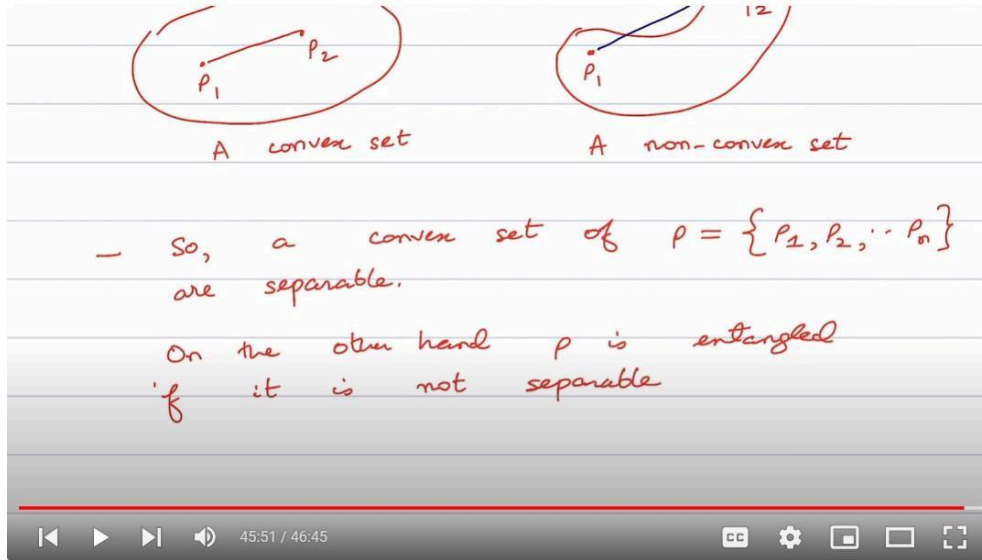 P1 P2
P1 12
A convex set
A non-convex set
— So, a convex set of ρ = {ρ1, ρ2, ·· ρn}
are separable.
On the other hand ρ is entangled
if it is not separable
45:51 / 46:45
CC